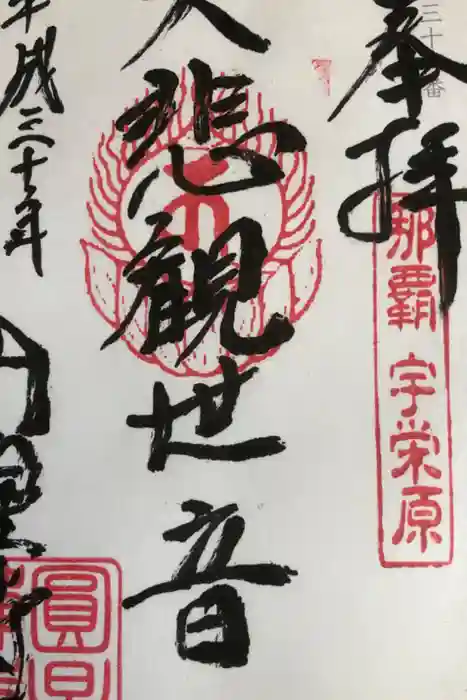 三十番
奉拝
那覇 宇栄原
大悲観世音
平成三十年
円
圓